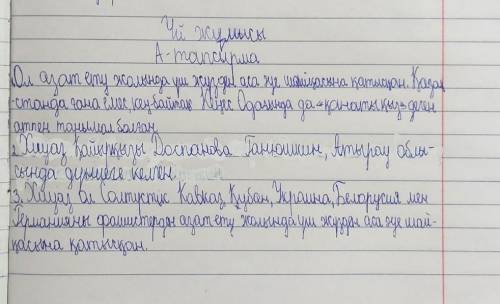 Үй жұмысы
А-тапсырма
Ол азат ету жолында үш жүзден аса әуе шайқасына қатысқан. Қазақ-
станда ғана емес, кең байтақ Кеңес Одағында да «қанатты қыз» деген
атпен танымал болған.
2. Хиуаз Қайырқызы Доспанова Ганюшкин, Атырау облы-
сында дүниеге келген.
3. Хиуаз ол Солтүстік Кавказ, Кубан, Украина, Белорусия мен
Германияны фашистерден азат ету жолында үш жүзден аса әуе шай-
қасына қатысқан.